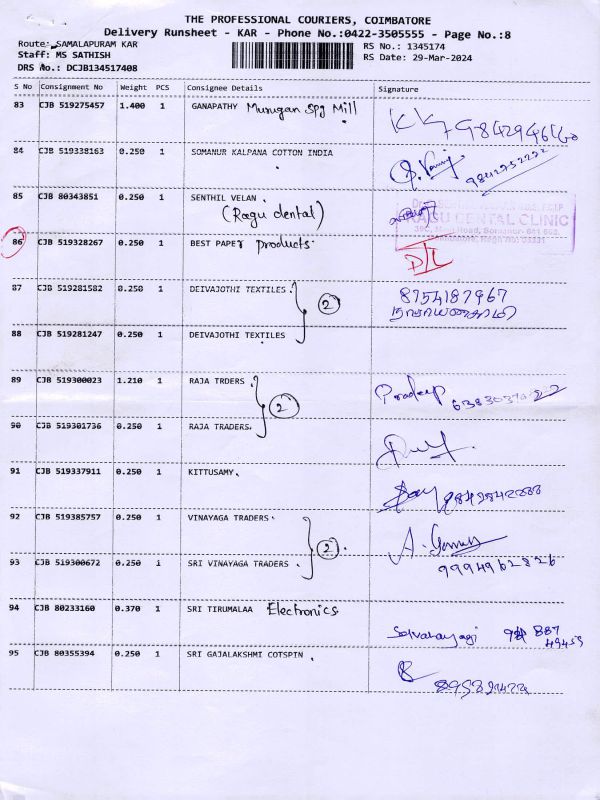 THE PROFESSIONAL COURIERS, COIMBATORE
Delivery Runsheet - KAR - Phone No.:0422-3505555 - Page No.:8
Route: SAMALAPURAM KAR
RS No.: 1345174
Staff: MS SATHISH
RS Date: 29-Mar-2024
DRS No.: DCJB134517408
S No Consignment No Weight PCS Consignee Details Signature
83 CJB 519275457 1.400 1 GANAPATHY Murugan Spg Mill
84 CJB 519338163 0.250 1 SOMANUR KALPANA COTTON INDIA
9842752222
85 CJB 80343851 0.250 1 SENTHIL VELAN
(Ragu dental)
RAGU DENTAL CLINIC
86 CJB 519328267 0.250 1 BEST PAPER products
D/L
87 CJB 519281582 0.250 1 DEIVAJOTHI TEXTILES 2 8754187967
நாராயணசாமி
88 CJB 519281247 0.250 1 DEIVAJOTHI TEXTILES
89 CJB 519300023 1.210 1 RAJA TRDERS 2 Pradeep
90 CJB 519301736 0.250 1 RAJA TRADERS
91 CJB 519337911 0.250 1 KITTUSAMY
92 CJB 519385757 0.250 1 VINAYAGA TRADERS 2
93 CJB 519300672 0.250 1 SRI VINAYAGA TRADERS 9994962826
94 CJB 80233160 0.370 1 SRI TIRUMALAA Electronics
95 CJB 80355394 0.250 1 SRI GAJALAKSHMI COTSPIN